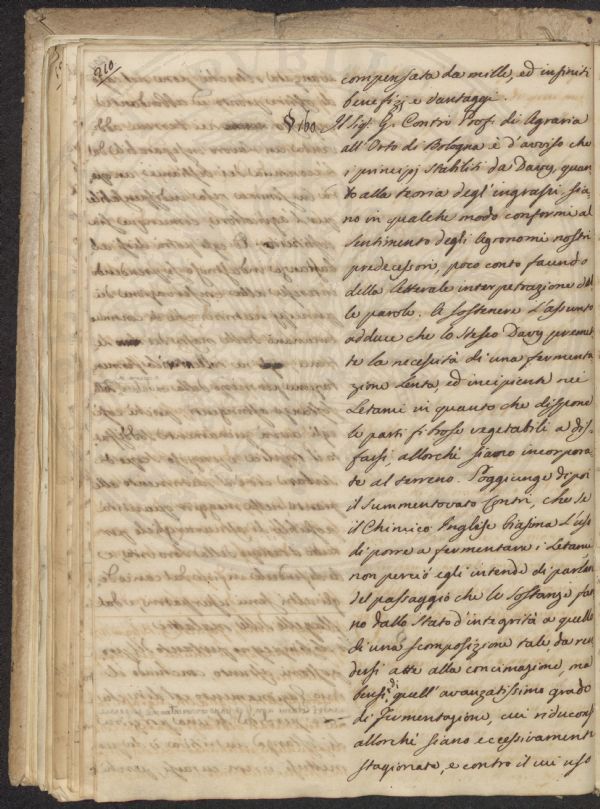 210
compensata da mille, ed infiniti
benefizj e vantaggi.
§ 160. Il Sig. G. Contri Prof. di Agraria
all'Orto di Bologna è d'avviso che
i principj stabiliti da Davy, quan
to alla teoria degl'ingrassi sia
no in qualche modo conformi al
sentimento degli Agronomi nostri
predecessori, poco conto facendo
della letterale interpetrazione del
le parole. A sostenere l'assunto
adduce che lo stesso Davy premet
te la necessità di una fermenta
zione lenta ed incipiente nei
Letami in quanto che dispone
le parti fibrose vegetabili a dis
farsi, allorchè siano incorpora
te al terreno. Soggiunge di poi
il summentovato Contri, che se
il Chimico Inglese biasima l'uso
di porre a fermentare i Letami
non perciò egli intende di parlar
del passaggio che le sostanze fan
no dallo stato d'integrità a quello
di una scomposizione tale, da ren
dersi atte alla concimazione, ma
bensì di quell'avanzatissimo grado
di Fermentazione, cui riduconsi
allorchè siano eccessivamente
stagionate, e contro il cui uso